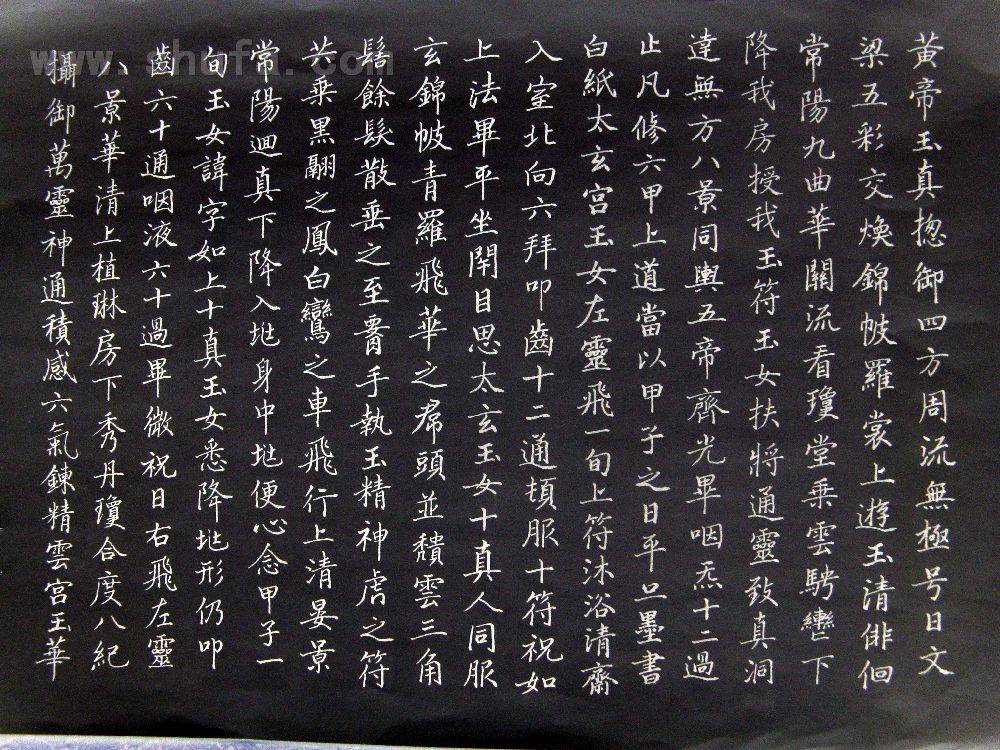 www.shufa.com
黃帝玉真揔御四方周流無極号曰文
梁五彩交煥錦帔羅裳上遊玉清俳佪
常陽九曲華關流看瓊堂乗雲騁轡下
降我房授我玉符玉女扶將通靈致真洞
達無方八景同輿五帝齊光畢咽炁十二過
止凡修六甲上道當以甲子之日平旦墨書
白紙太玄宮玉女左靈飛一旬上符沐浴清齋
入室北向六拜叩齒十二通頓服十符祝如
上法畢平坐閇目思太玄玉女十真人同服
玄錦帔青羅飛華之帬頭並頹雲三角
髻餘髮散垂之至署手執玉精神虎之符
共乗黑翮之鳳白鸞之車飛行上清晏景
常陽迴真下降入地身中地便心念甲子一
旬玉女諱字如上十真玉女悉降地形仍叩
齒六十通咽液六十過畢微祝曰右飛左靈
八景華清上植琳房下秀丹瓊合度八紀
攝御萬靈神通積感六氣鍊精雲宮玉華